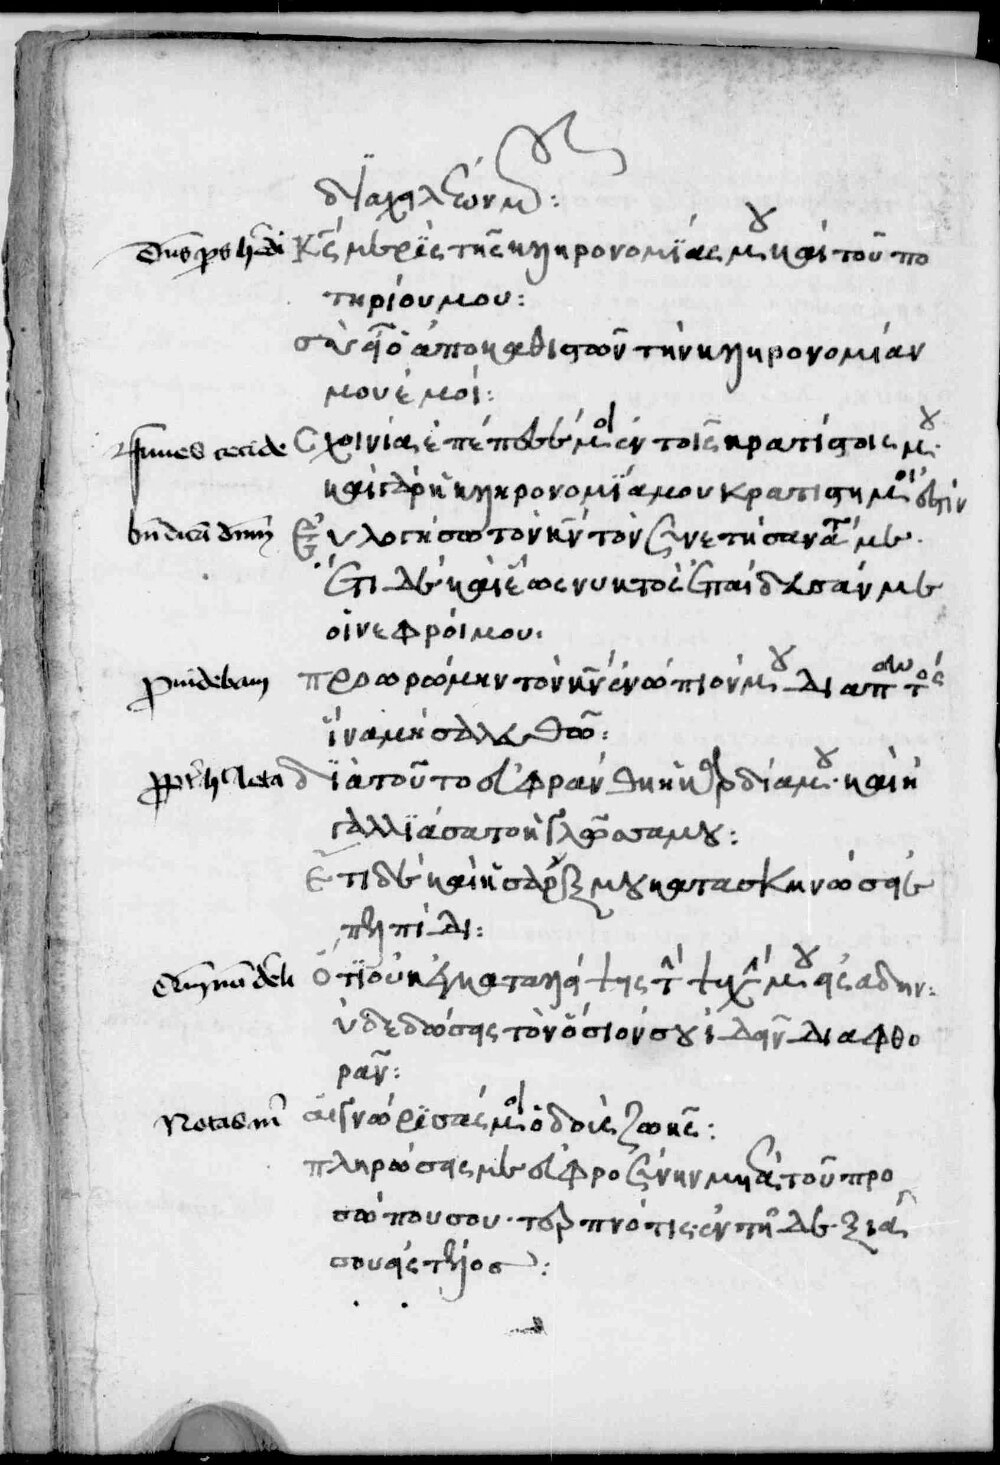 διὰ χειλέων μου:
Dn̄s ps hedi Κς μερὶς τῆς κληρονομίας μου καὶ τοῦ πο
τηρίου μου:
σὺ εἶ ὁ ἀποκαθιστῶν τὴν κληρονομίαν
μου ἐμοί:
funes cecide Σχοινία ἐπέπεσέ μοι ἐν τοῖς κρατίστοις μου·
καὶ γὰρ ἡ κληρονομία μου κρατίστη μοι ἐστίν
bn̄dicā dn̄m Εὐλογήσω τὸν κν τὸν συνετήσαντά με·
Ἔτι δὲ καὶ ἕως νυκτὸς ἐπαίδευσάν με
οἱ νεφροί μου·
Prouidebam προωρώμην τὸν κν ἐνώπιόν μου διαπαντός
ἵνα μὴ σαλευθῶ:
pp h leta διὰ τοῦτο εὐφράνθη ἡ καρδία μου· καὶ ἠ
γαλλιάσατο ἡ γλῶσσα μου:
Ἔτι δὲ καὶ ἡ σάρξ μου κατασκηνώσει ἐ
π' ἐλπίδι:
Ὅτι οὐκ ἐγκαταλείψεις τὴν ψυχήν μου εἰς ἅδην:
οὐδὲ δώσεις τὸν ὅσιόν σου ἰδεῖν διαφθο
ράν:
Notas m̄ ἐγνώρισάς μοι ὁδοὺς ζωῆς:
πληρώσεις με εὐφροσύνην μετὰ τοῦ προ
σώπου σου· τερπνότης ἐν τῇ δεξιᾷ
σου εἰς τέλος: